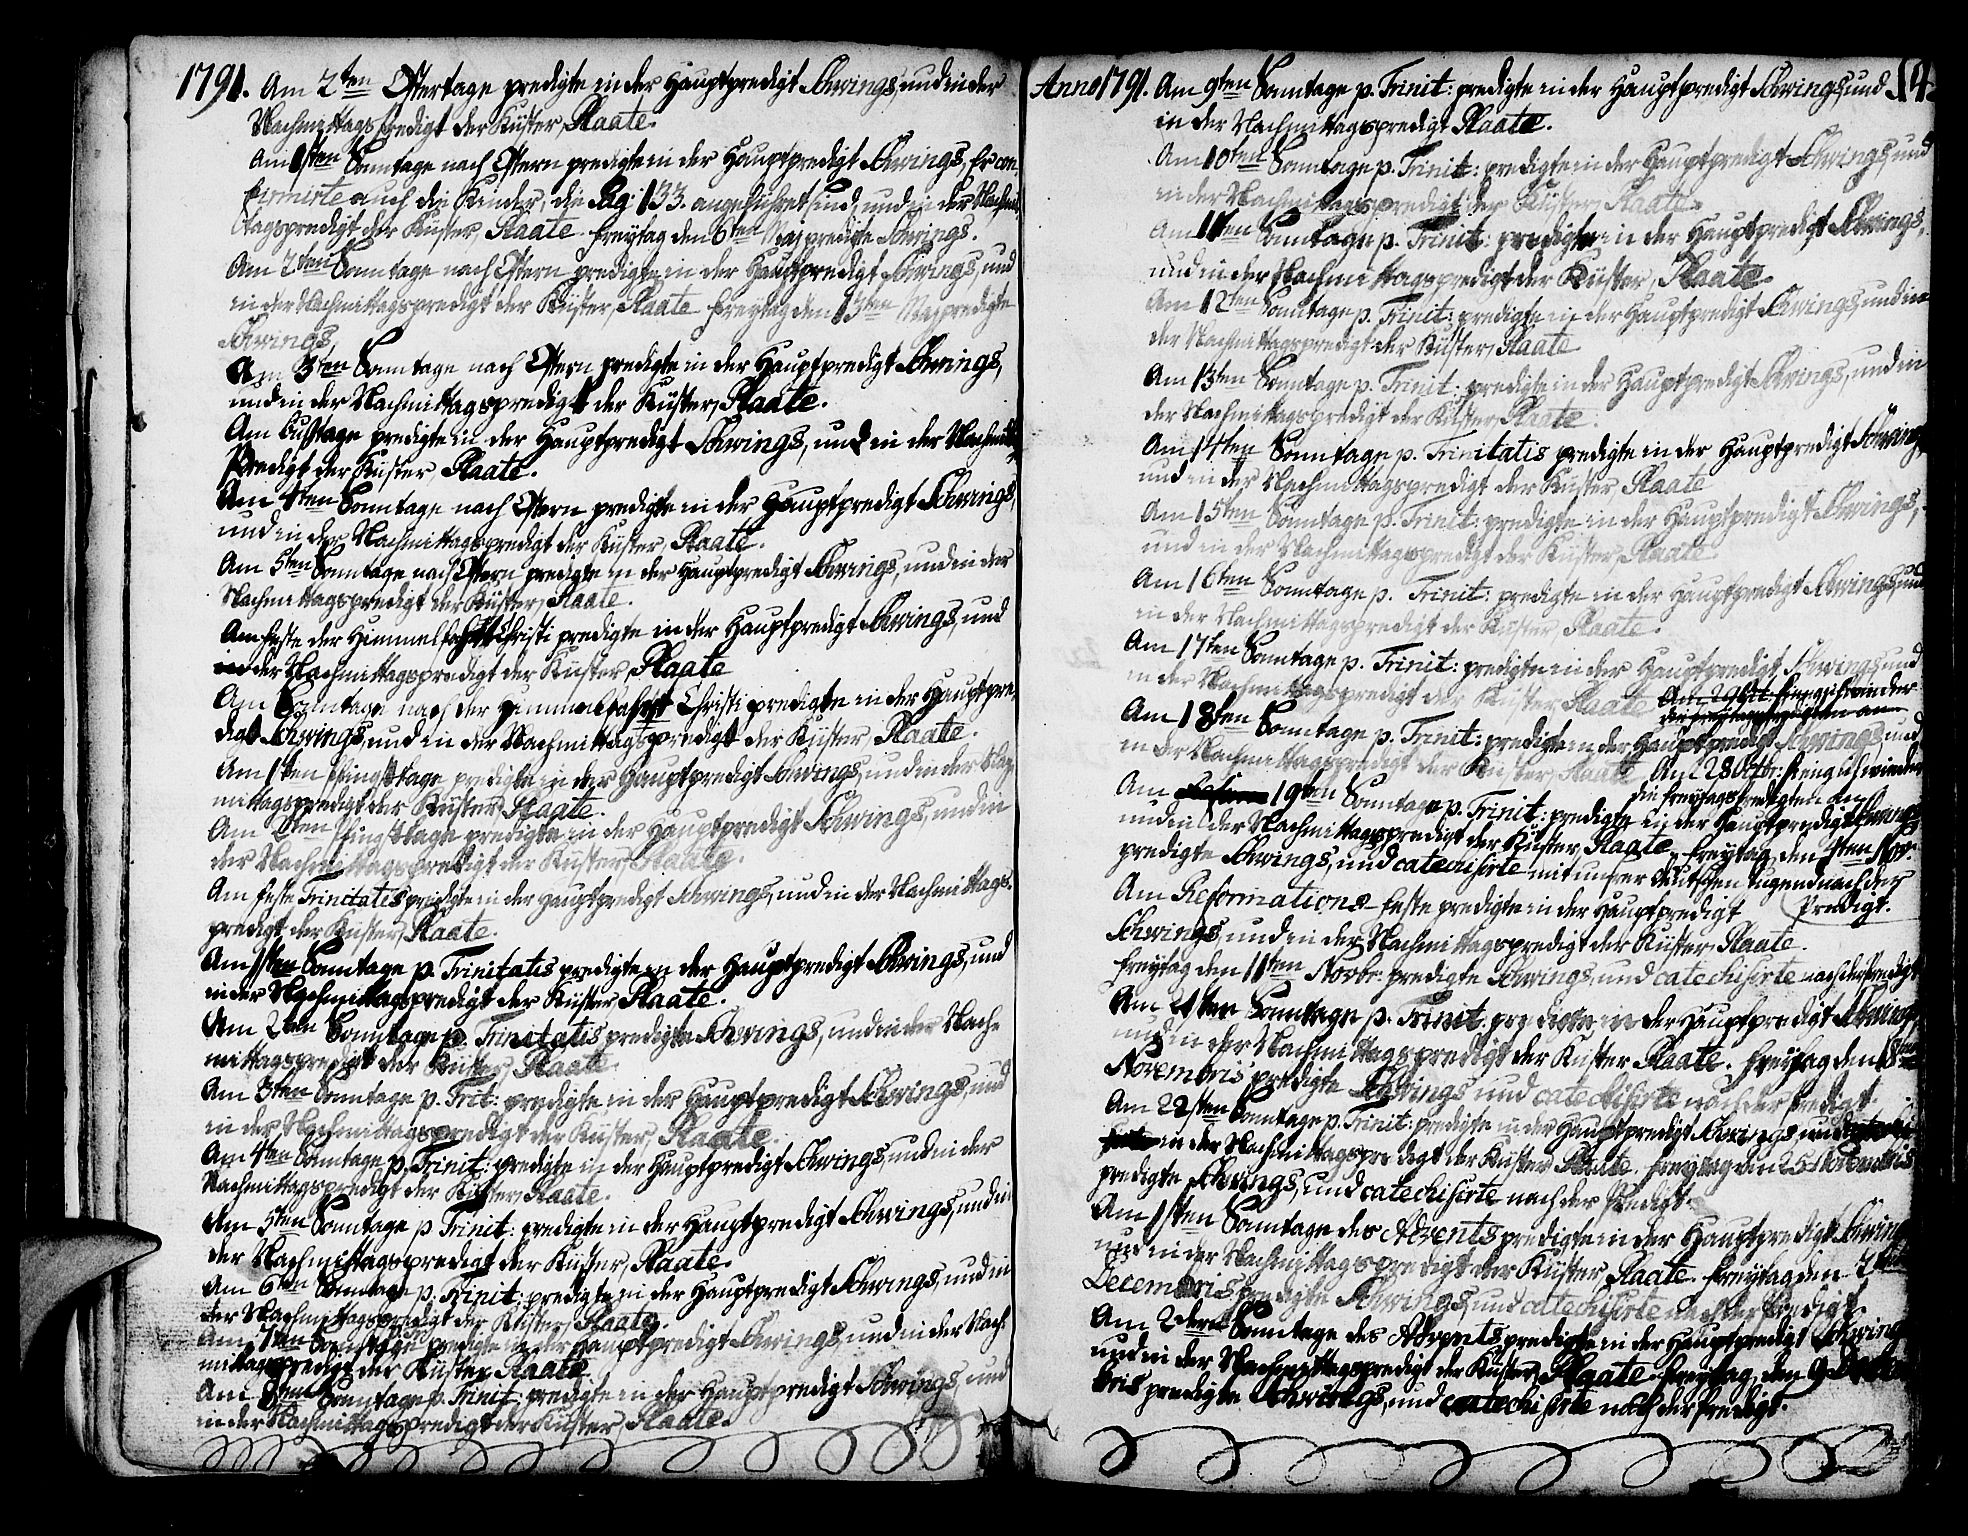 1791. Am 2ten Ostertage predigte in der Hauptpredigt Schwings, und in der
Nachmittagspredigt der Küster, Plaate.
Am 1sten Sonntage nach Ostern predigte in der Hauptpredigt Schwings, Er con-
firmirte auch die Kinder, die Pag: 133. angeführet sind, und in der Nachmit
tagspredigt der Küster, Plaate. Freytag den 6ten Maj predigte Schwings.
Am 2ten Sonntage nach Ostern predigte in der Hauptpredigt Schwings, und
in der Nachmittagspredigt der Küster, Plaate Freytag den 13ten Maj predigte
Schwings,
Am 3ten Sonntage nach Ostern predigte in der Hauptpredigt Schwings,
und in der Nachmittagspredigt der Küster, Plaate.
Am Busstage predigte in der Hauptpredigt Schwings, und in der Nachmitt
Predigt der Küster, Plaate.
Am 4ten Sonntage nach Ostern predigte in der Hauptpredigt Schwings,
und in der Nachmittagspredigt der Küster, Plaate.
Am 5ten Sonntage nach Ostern predigte in der Hauptpredigt Schwings, und in der
Nachmittagspredigt der Küster, Plaate.
Am Feste der Himmelfahrt Christi predigte in der Hauptpredigt Schwings, und
in der Nachmittagspredigt der Küster, Plaate
Am Sonntage nach der Himmelfahrt Christi predigte in der Hauptpre
digt Schwings, und in der Nachmittagspredigt der Küster, Plaate.
Am 1sten Pfingsttage predigte in der Hauptpredigt Schwings, und in der Nach
mittagspredigt der Küster, Plaate.
Am 2ten Pfingsttage predigte in der Hauptpredigt Schwings, und in
der Nachmittagspredigt der Küster, Plaate.
Am Feste Trinitatis predigte in der Hauptpredigt Schwings, und in der Nachmittags-
predigt der Küster, Plaate.
Am 1sten Sonntage p. Trinitatis predigte in der Hauptpredigt Schwings, und
in der Nachmittagspredigt der Küster, Plaate.
Am 2ten Sonntage p. Trinitatis predigte Schwings, und in der Nach-
mittagspredigt der Küster, Plaate.
Am 3ten Sonntage p. Trit: predigte in der Hauptpredigt Schwings, und
in der Nachmittagspredigt der Küster, Plaate.
Am 4ten Sonntage p. Trinit: predigte in der Hauptpredigt Schwings, und in der
Nachmittagspredigt der Küster, Plaate.
Am 5ten Sonntage p Trinit: predigte in der Hauptpredigt Schwings, und in
der Nachmittagspredigt der Küster, Plaate.
Am 6ten Sonntage p. Trinit: predigte in der Hauptpredigt Schwings, und in
der Nachmittagspredigt der Küster, Plaate.
Am 7ten Sonntage predigte in der Hauptpredigt Schwings, und in der Nach
mittagspredigt der Küster Plaate
Am 8ten Sonntage p. Trinit: predigte in der Hauptpredigt Schwings, und
in der Nachmittagspredigt der Küster, Plaate.
Anno 1791. Am 9ten Sonntage p. Trinit: predigte in der Hauptpredigt Schwings und
in der Nachmittagspredigt Plaate.
Am 10ten Sonntage p. Trinit: predigte in der Hauptpredigt Schwings, und
in der Nachmittagspredigt der Küster, Plaate.
Am 11ten Sonntage p. Trinit: predigte in der Hauptpredigt Schwings,
und in der Nachmittagspredigt der Küster, Plaate.
Am 12ten Sonntage p. Trinit: predigte in der Hauptpredigt Schwings, und in
der Nachmittagspredigt der Küster, Plaate
Am 13ten Sonntage p. Trinit: predigte in der Hauptpredigt Schwings, und in
der Nachmittagspredigt der Küster, Plaate.
Am 14ten Sonntage p. Trinitatis predigte in der Hauptpredigt Schwings
und in der Nachmittagspredigt der Küster, Plaate
Am 15ten Sonntage p. Trinit: predigte in der Hauptpredigt Schwings,
und in der Nachmittagspredigt der Küster, Plaate
Am 16ten Sonntage p. Trinit: predigte in der Hauptpredigt Schwings, und
in der Nachmittagspredigt der Küster, Plaate.
Am 17ten Sonntage p. Trinit: predigte in der Hauptpredigt Schwings, und
in der Nachmittagspredigt der Küster Plaate Am 29 Oct: fieng ich wieder
die Freytagspredigten an
Am 18ten Sonntage p. Trinit: predigte in der Hauptpredigt Schwings, und
in der Nachmittagspredigt der Küster, Plaate Am 28 Octbr: fieng ich wieder
die Freytagspredigten an
Am 19ten Sonntage p. Trinit: predigte in der Hauptpredigt Schwings
und in der Nachmittagspredigt der Küster Plaate, Freytag den 4ten Nov:
predigte Schwings, und catechisirte mit unsrer deutschen Jugend nach der
Predigt.
Am Reformations-Feste predigte in der Hauptpredigt
Schwings, und in der Nachmittagspredigt der Küster, Plaate.
Freytag den 11ten Novbr. predigte Schwings, und catechisirte nach der Predigt
Am 21sten Sonntage p. Trinit: predigte in der Hauptpredigt Schwings
und in der Nachmittagspredigt der Küster Plaate. Freytag den 18ten
Novembris predigte Schwings und catechisirte nach der Predigt.
Am 22sten Sonntage p. Trinit: predigte in der Hauptpredigt Schwings und
in der Nachmittagspredigt der Küster Plaate. Freytag den 25 Novembris
predigte Schwings, und catechisirte nach der Predigt.
Am 1sten Sonntage des Advents predigte in der Hauptpredigt Schwings
und in der Nachmittagspredigt der Küster, Plaate. Freytag den 2ten
Decembris predigte Schwings, und catechisirte nach der Predigt.
Am 2ten Sonntage des Advents predigte in der Hauptpredigt Schwings
und in der Nachmittagspredigt der Küster, Plaate. Freytag, den 9 Decem
bris predigte Schwings, und catechisirte nach der Predigt.